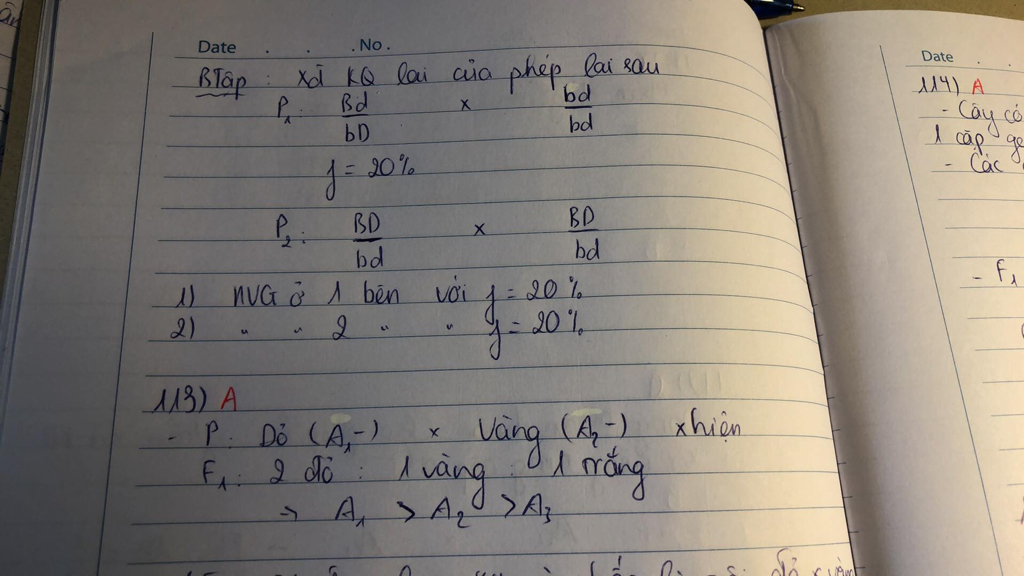 Date . . . No.
BTập : Xđ KQ lai của phép lai sau
P₁: Bd/bD x bd/bd
f = 20%
P₂: BD/bd x BD/bd
1) HVG ở 1 bên với f = 20%
2) " " 2 " " f = 20%
113) A
- P: Đỏ (A₁-) x Vàng (A₂-) xhiện
F₁: 2 đỏ : 1 vàng : 1 trắng
→ A₁ > A₂ > A₃
Date . .
114) A
- Cây có
1 cặp ge
- Các
- F₁